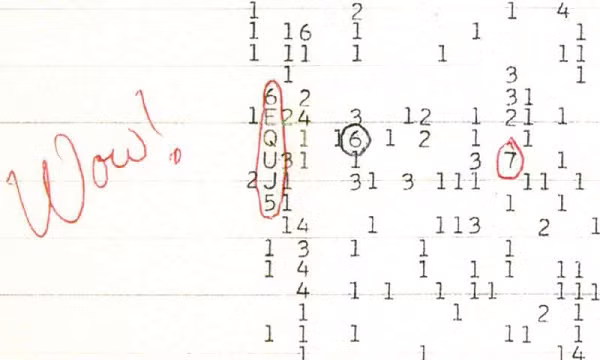 1 2 1 4
1 16 1 1 1
1 11 1 1 11
1 3 1
6 2 31
E 24 3 12 1 21 1
Q 1 16 1 2 1 1
U 31 1 3 7 1
2 J 1 31 3 111 11 1
5 1 1 1
14 1 113 2 1
1 3 1 1 1
1 4 1 1 1 11
4 1 1 1 11 111
1 1 2 1
1 1 1 11 1
1 1 14
Wow!